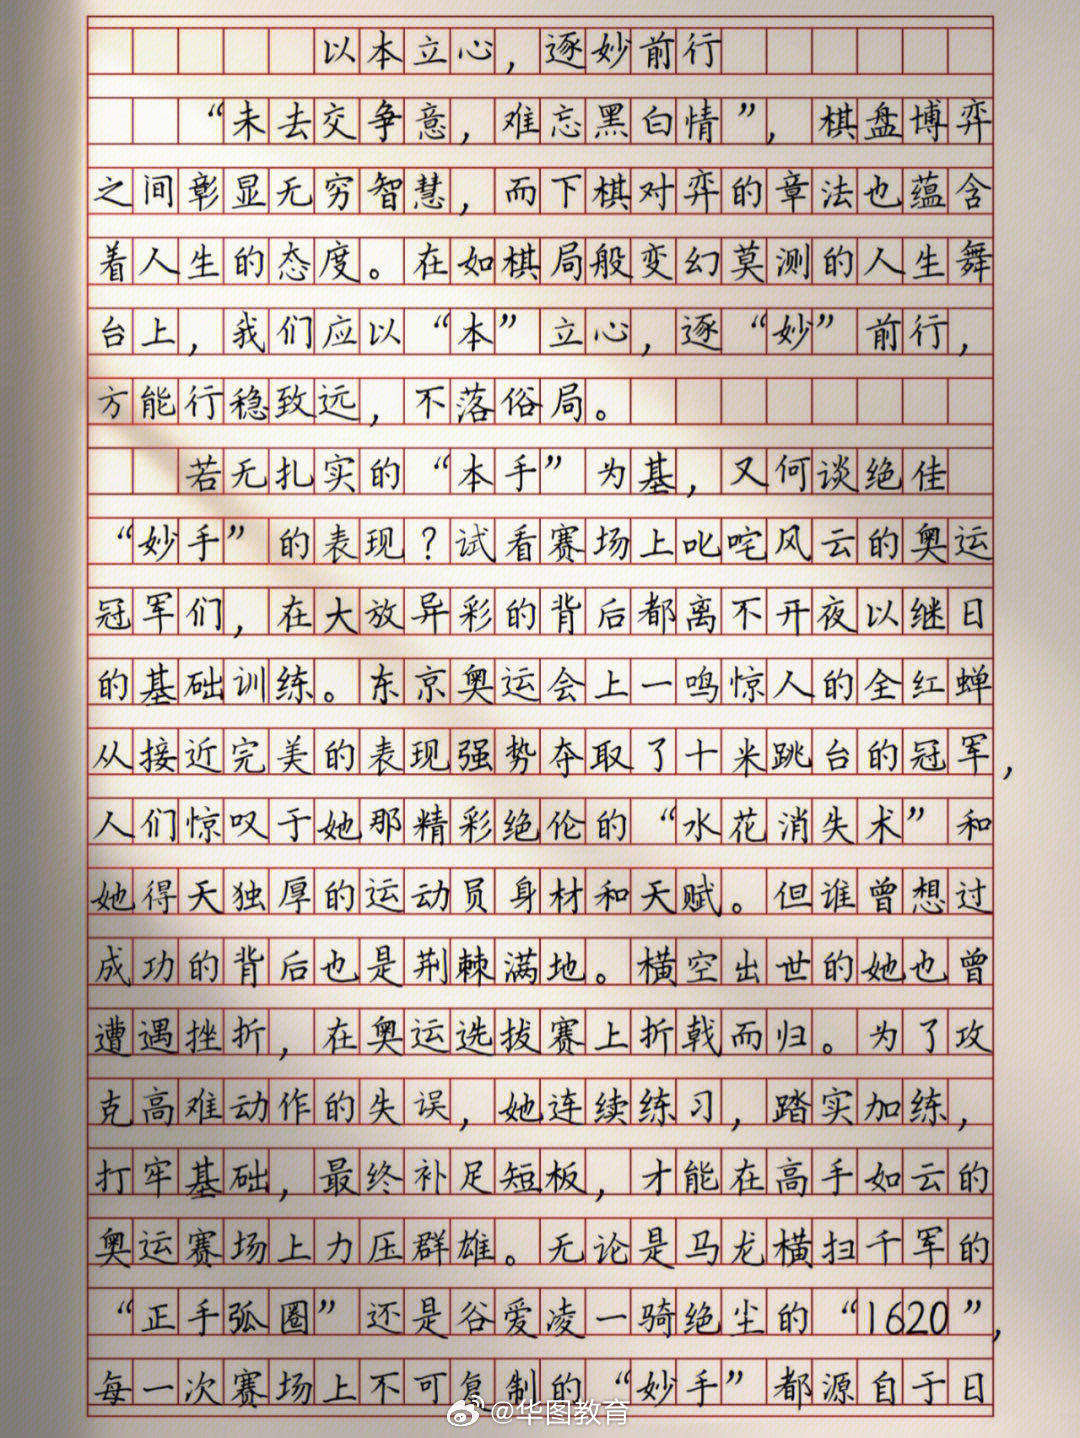 以本立心，逐妙前行
“未去交争意，难忘黑白情”，棋盘博弈
之间彰显无穷智慧，而下棋对弈的章法也蕴含
着人生的态度。在如棋局般变幻莫测的人生舞
台上，我们应以“本”立心，逐“妙”前行，
方能行稳致远，不落俗局。
若无扎实的“本手”为基，又何谈绝佳
“妙手”的表现？试看赛场上叱咤风云的奥运
冠军们，在大放异彩的背后都离不开夜以继日
的基础训练。东京奥运会上一鸣惊人的全红蝉
从接近完美的表现强势夺取了十米跳台的冠军，
人们惊叹于她那精彩绝伦的“水花消失术”和
她得天独厚的运动员身材和天赋。但谁曾想过
成功的背后也是荆棘满地。横空出世的她也曾
遭遇挫折，在奥运选拔赛上折戟而归。为了攻
克高难动作的失误，她连续练习，踏实加练，
打牢基础，最终补足短板，才能在高手如云的
奥运赛场上力压群雄。无论是马龙横扫千军的
“正手弧圈”还是谷爱凌一骑绝尘的“1620”，
每一次赛场上不可复制的“妙手”都源自于日
@华图教育